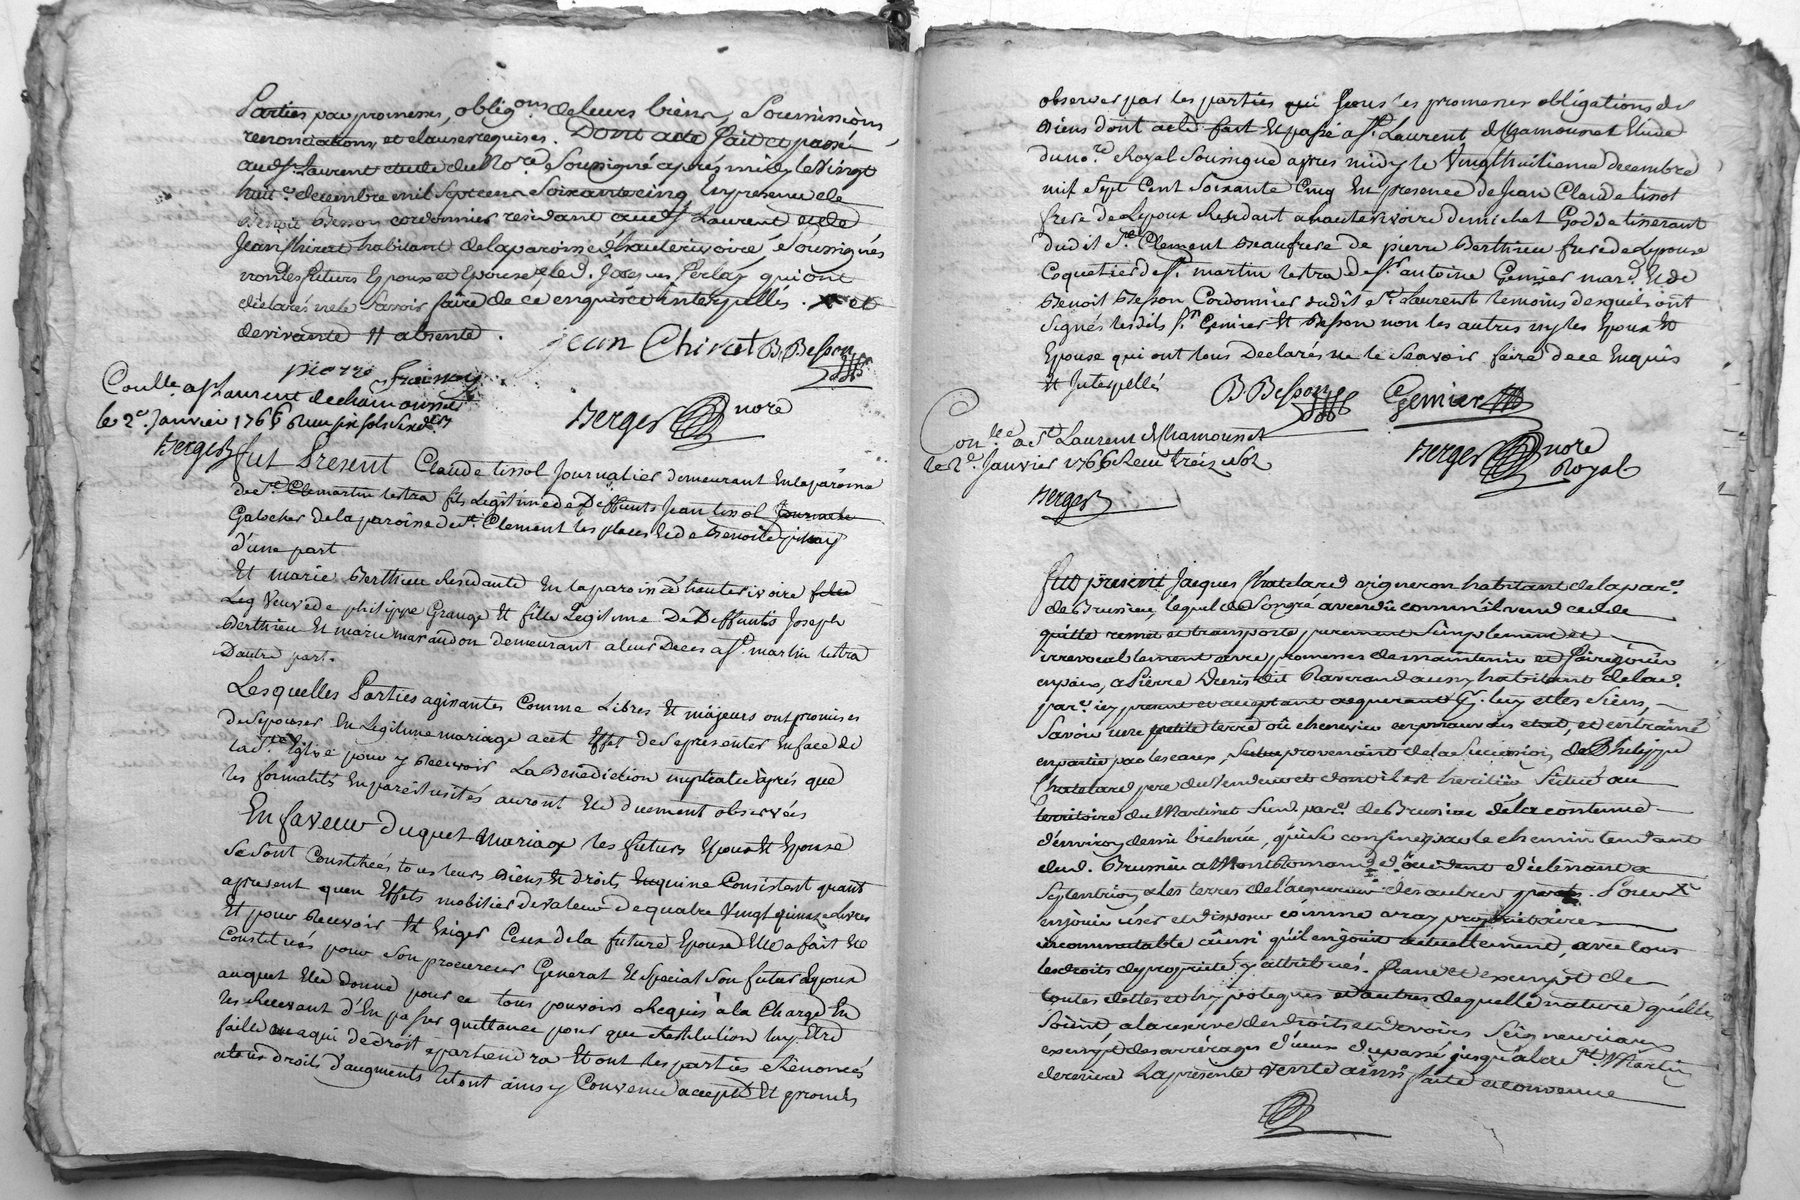 Parties par promesses, oblig.ons de leurs biens, Soumissions,
renonciations et clauses requises. Dont acte fait et passé
aud St. Laurent etude du No.re Soussigné après midy le vingt
huit.e decembre mil Sept cent Soixante cinq En presence de
Benoit Besson cordonnier residant aud St Laurent et de
Jean Chirat habitant de la paroisse d'hauterivoire Soussignés
non les futurs Epoux et Epouse led. Jacques qui ont
déclaré ne le Savoir faire de ce enquis et interpellés. et
derivante # absente.
Jean Chirat B. Besson
pierre
Coulle. a St Laurent de chamousset
le 2.e Janvier 1766 Reçu six sols
Berger
Berger nore
fut Present Claude tissot Journalier demeurant En la paroisse
de St. Cle martin lestra fils Legitime de Deffunts Jean tissot Journalie
Galocher de la paroisse de St. Clement les places Et de Benoite pinay
d'une part
Et marie Berthieu Residante En la paroisse d'hauterivoire fille
Leg Veuve de philippe Grange Et fille Legitime De Deffunts Joseph
Berthieu Et marie marandon demeurant a leur Deces a St. martin lestra
D'autre part.
Lesquelles Parties agissantes Comme Libres Et majeurs ont promis
de Sepouser En Legitime mariage a cet Effet de Se presenter En face de
la Ste Eglise pour y Recevoir La Benediction nuptiale après que
les formalités En pareil usités auront Eté duement observées
En faveur duquel Mariage les futurs Epoux Et Epouse
se sont Constitués tous leurs Biens Et droits Enquine Consistent quant
apresent quen Effets mobilier de valeur De quatre Vingt quinze Livres
Et pour Recevoir Et Exiger Ceux de la future Epouse Elle a fait Et
Constitués pour Son procureur General Et Special Son futur Epoux
auquel Elle donne pour ce tous pouvoirs Requis à la Charge En
les Recevant d'En passer quittance pour que Restitution luy Etre
faitte ou a qui de droit apartiendra Et ont les parties Renoncés
a tous droits d'augments letout ainsy Convenu accepté Et promis
observer par les parties qui Sous les promesses obligations de
Biens dont acte fait Et passé a St. Laurent de Chamousset Etude
du no.re Royal Soussigné apres midy le Vingthuitieme decembre
mil Sept Cent Soixante Cinq En presence de Jean Claude tissot
frere de Lepoux Residant a hauterivoire de michel Godde tisserant
dudit St. Clement Beaufrere de pierre Berthieu frere de Lepouse
Coquetier de St. martin lestra de Sr. antoine Genier mar.d Et de
Benoit Besson Cordonnier dudit St. Laurent temoins desquels ont
Signés lesdits Sr. Genier Et Besson non les autres ny les Epoux Et
Epouse qui ont tous Declarés ne le Scavoir faire de ce Enquis
Et Interpellés
B. Besson Genier
Con.lle a St. Laurent de Chamousset
le 2.e Janvier 1766 Reçu treize sols
Berger
Berger nore
Royal
fut présent Jacques Chatelard vigneron habitant de la par.e
de Brussieu, lequel de Son gré a vendu comme il vend cedde
quitte remet et transporte purement Simplement et
irrevocablement avec promesses de maintenir et faire jouir
en paix, a Pierre Decris dit Ravrand aussy habitant de lad.e
par.e icy present et acceptant acquereur p. luy et les Siens,
Savoir une petite terre ou cheneviere en mauvais etat, et entrainé
en partie par les eaux, provenante de la Succession de Philippe
Chatelard pere du Vendeur et dont il est heritier Situé au
territoire du Martinet Sud. par.e de Brussieu de la contenue
d'environ demi bicherée, qui se confine par le chemin tendant
dud. Brussieu a Montromand d'occident d'elevant a
Septentrion, a les terres de l'acquereur des autres parts. Pour
en jouir user et disposer comme vray proprietaire
incommutable ainsi qu'il en jouit actuellement, avec tous
les droits de proprieté y attribués. franc et exempt de
toutes dettes et hypoteques et autres de quelle nature qu'elles
Soient a la reserve des droits et devoirs Seigneuriaux
exempt des arrérages d'iceux du passé jusqu'a la St. Martin
derniere La presente vente ainsi faite et convenue